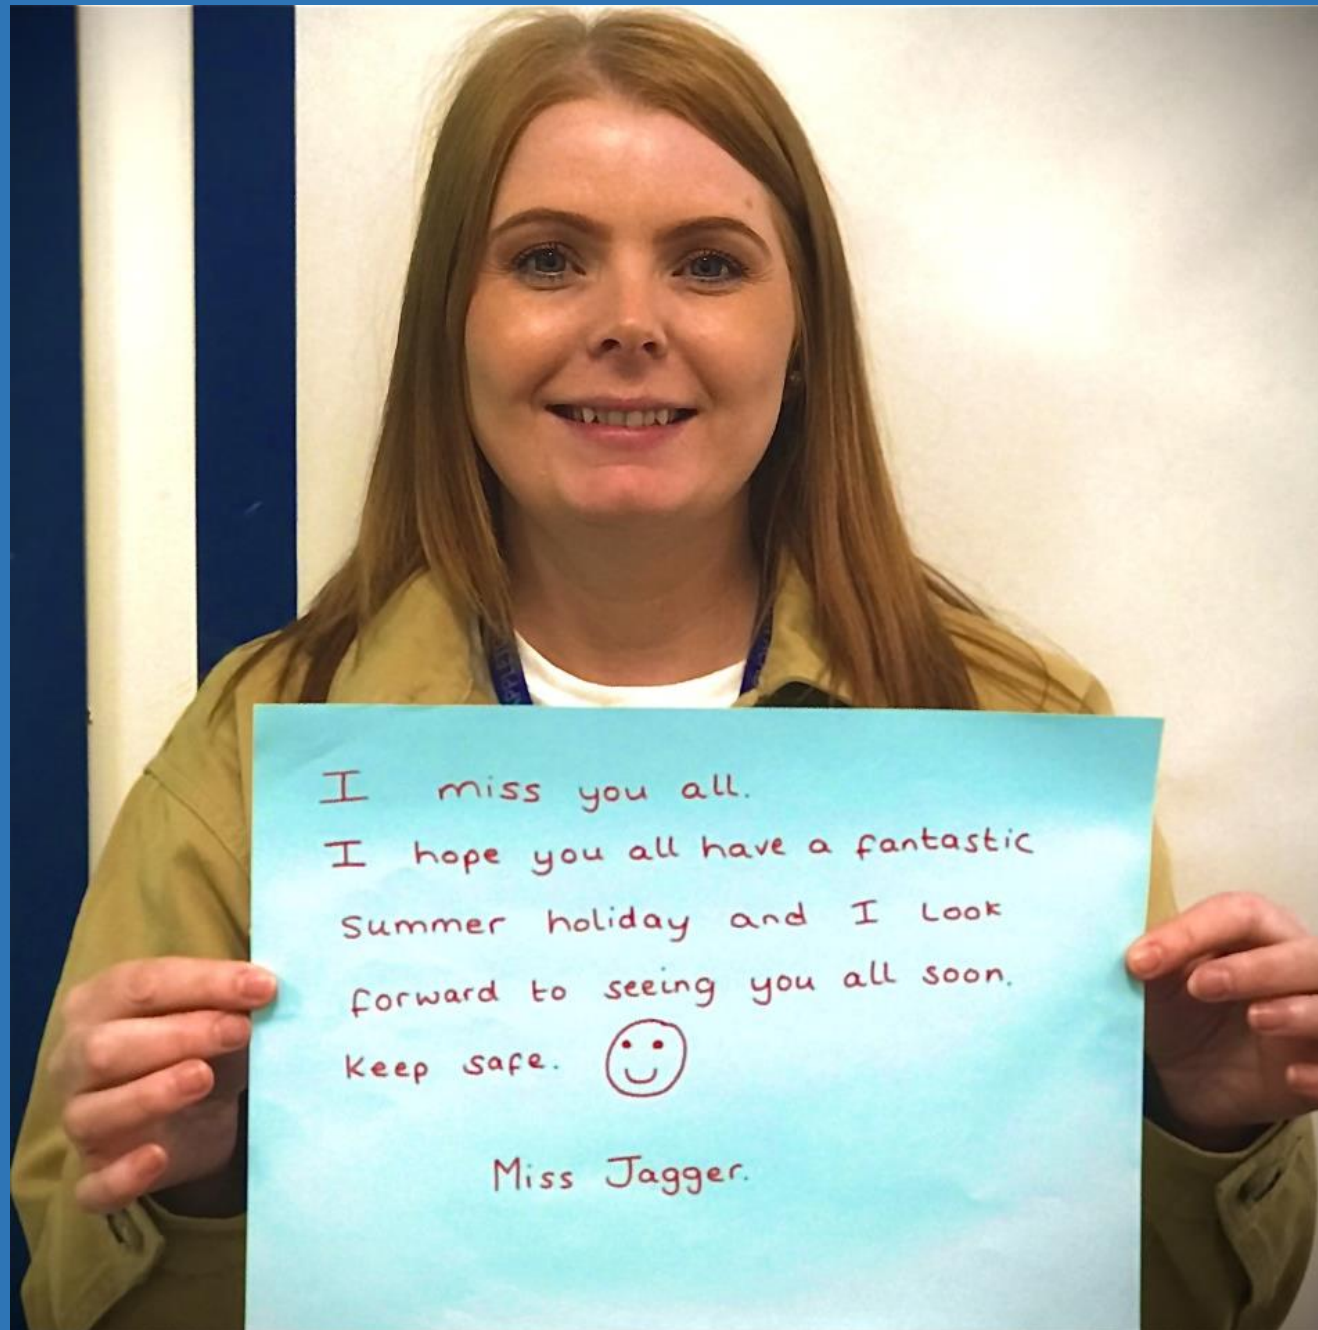 I miss you all.
I hope you all have a fantastic
Summer holiday and I Look
forward to seeing you all soon.
Keep safe.
Miss Jagger.